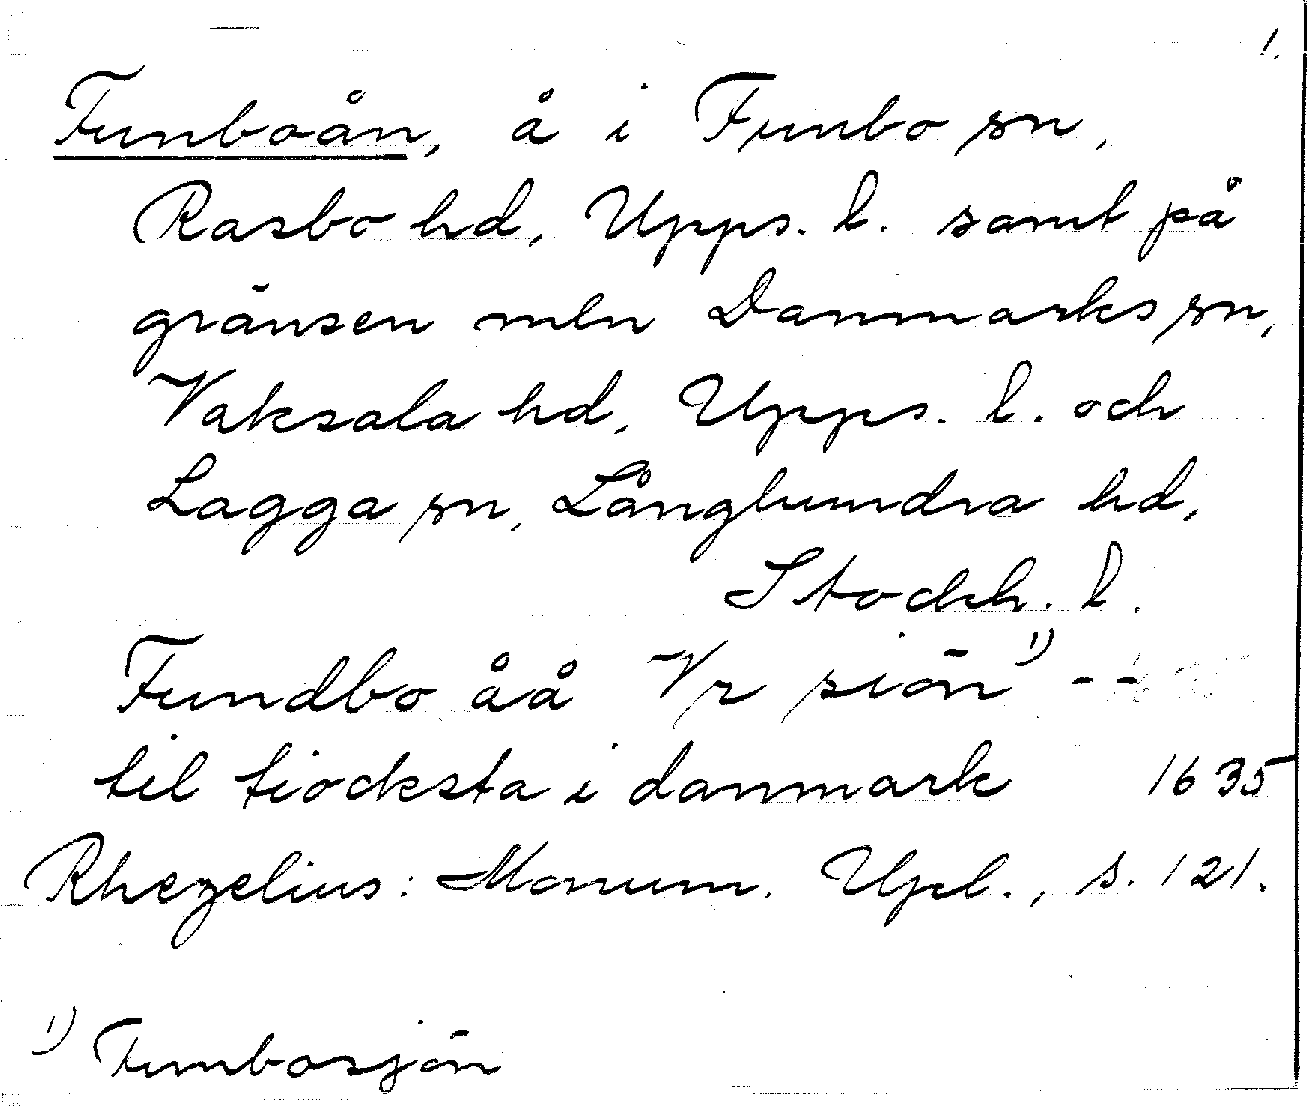 1.
Funboån, å i Funbo sn,
Rasbo hd, Upps. l. samt på
gränsen mln Danmarks sn,
Vaksala hd, Upps. l. och
Lagga sn, Långhundra hd,
Stockh. l.
Fundbo åå Vr siön 1) - -
til tiocksta i danmark 1635
Rhezelius: Monum. Upl., s. 121.
1) Funbosjön